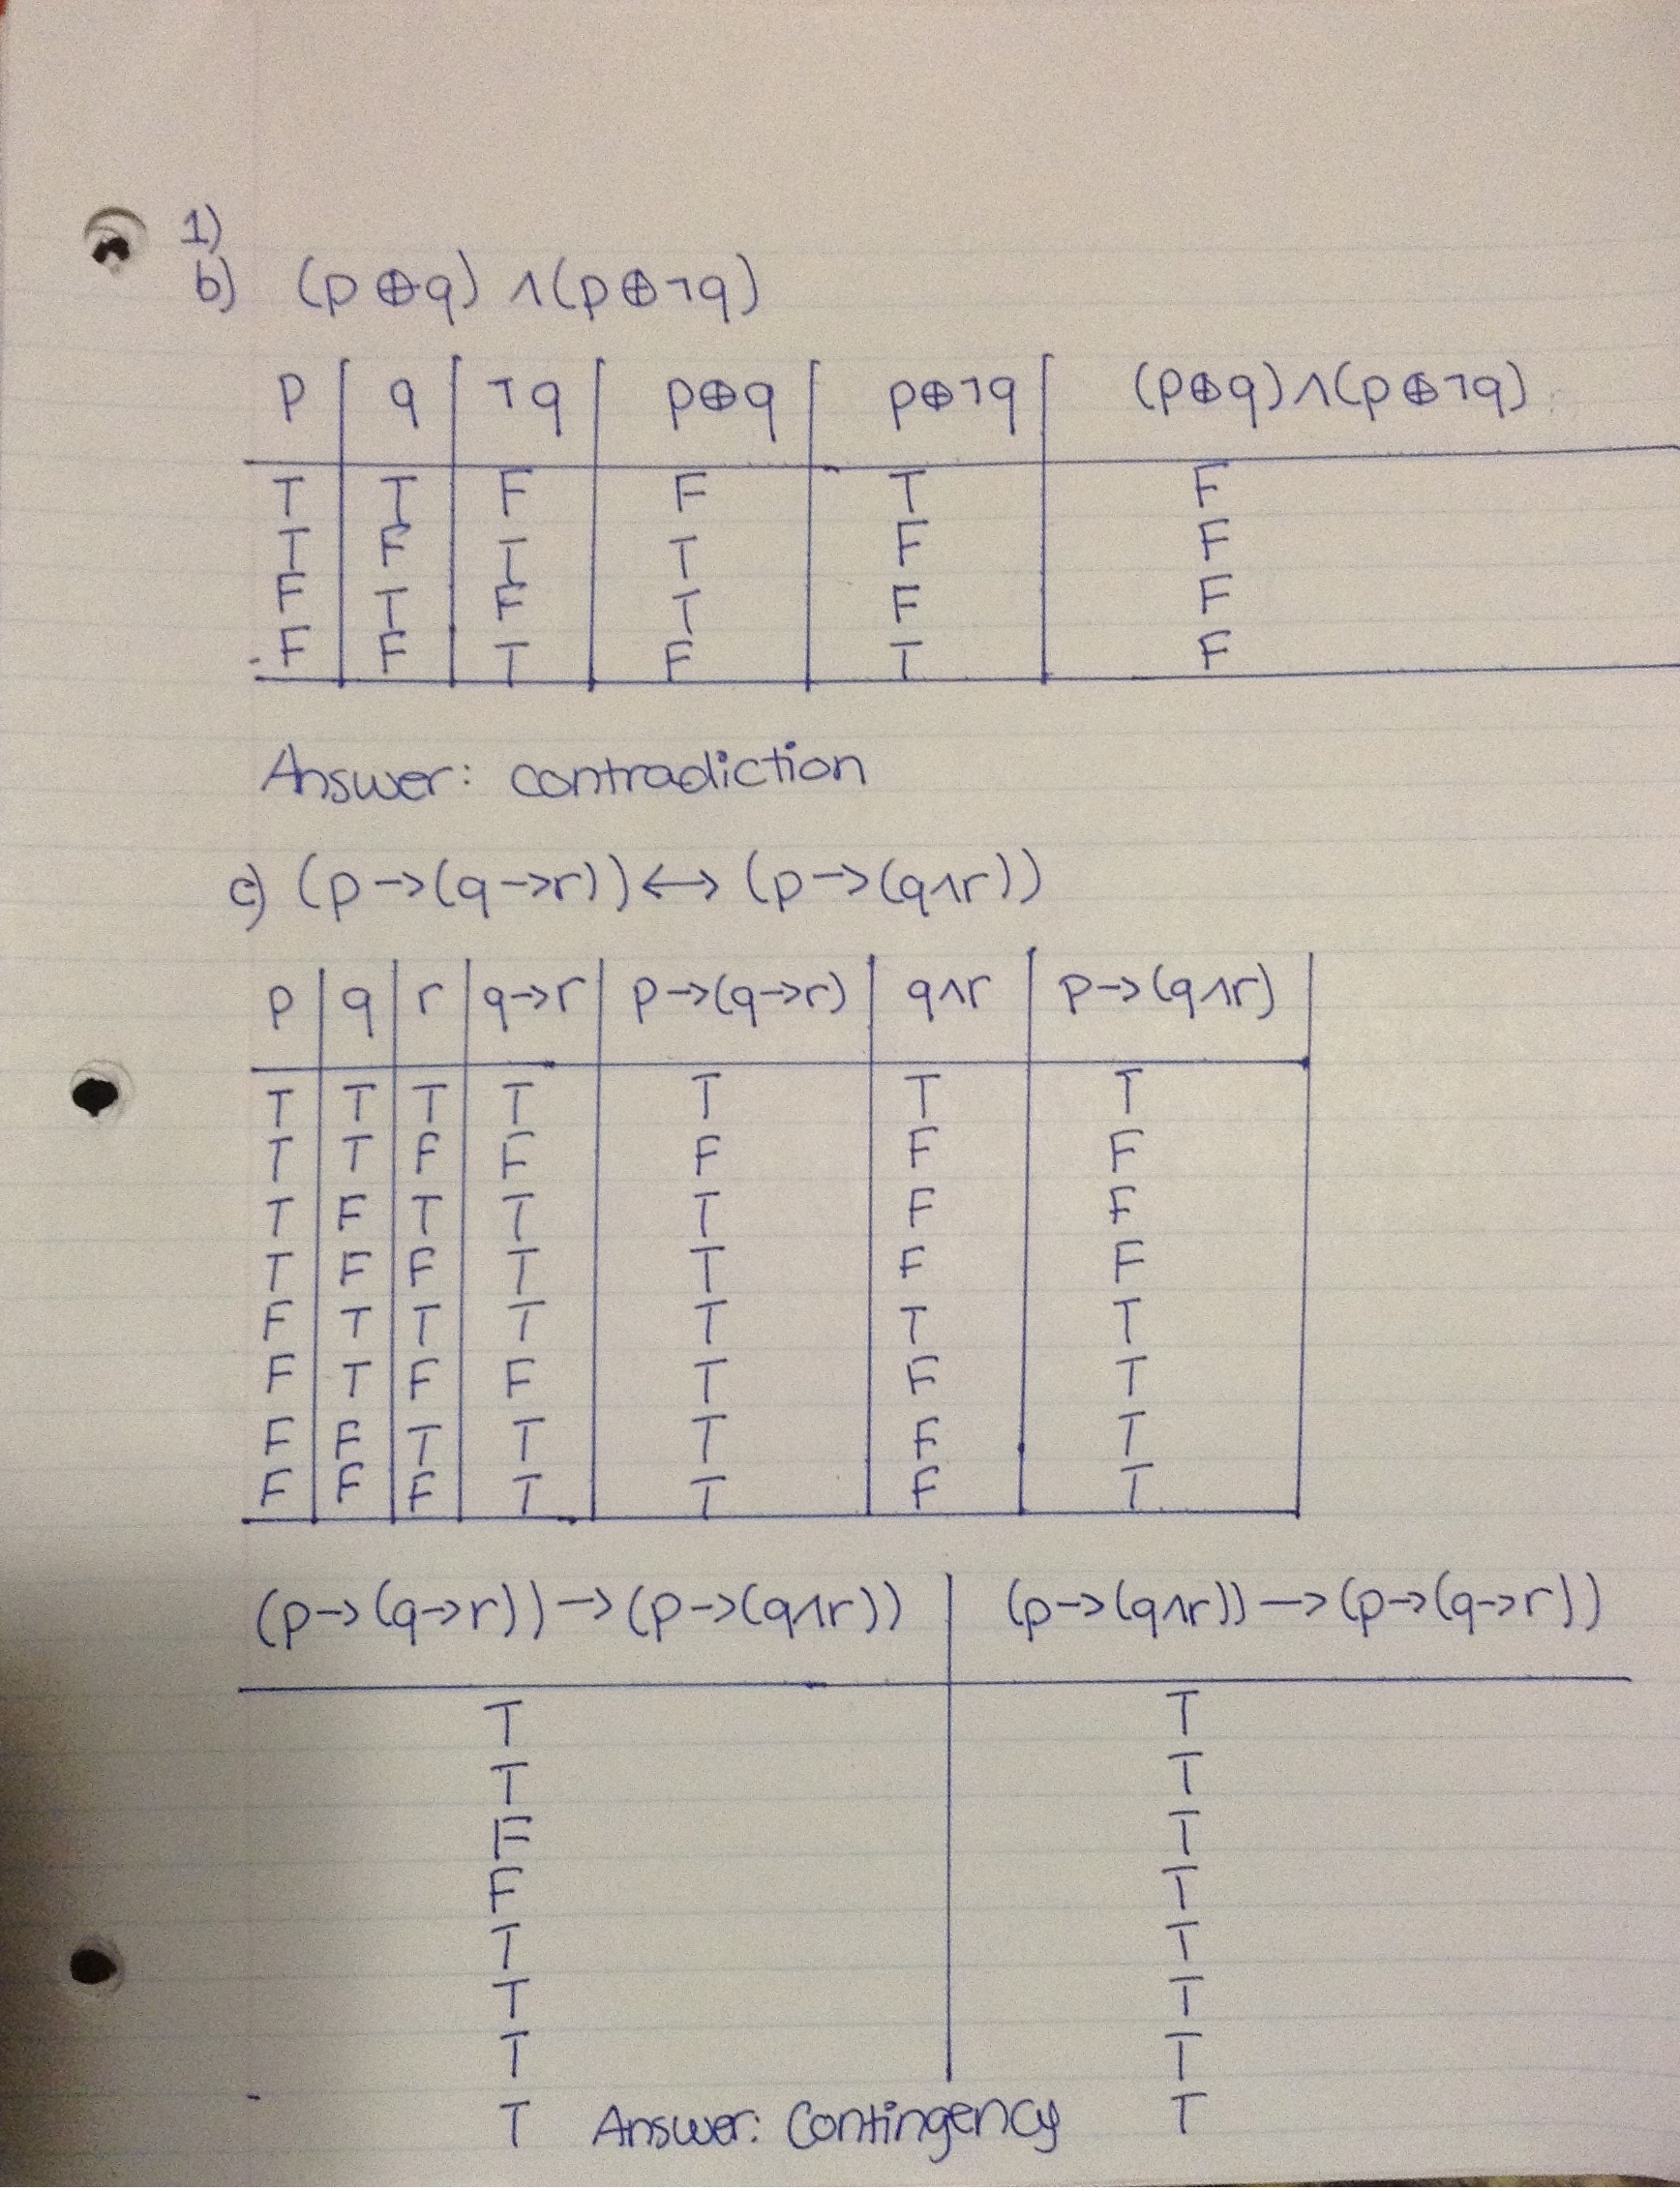 1)
b) (p ⊕ q) ∧ (p ⊕ ¬q)
p | q | ¬q | p⊕q | p⊕¬q | (p⊕q)∧(p⊕¬q)
T | T | F | F | T | F
T | F | T | T | F | F
F | T | F | T | F | F
F | F | T | F | T | F
Answer: contradiction
c) (p→(q→r)) ↔ (p→(q∧r))
p | q | r | q→r | p→(q→r) | q∧r | p→(q∧r)
T | T | T | T | T | T | T
T | T | F | F | F | F | F
T | F | T | T | T | F | F
T | F | F | T | T | F | F
F | T | T | T | T | T | T
F | T | F | F | T | F | T
F | F | T | T | T | F | T
F | F | F | T | T | F | T
(p→(q→r))→(p→(q∧r)) | (p→(q∧r))→(p→(q→r))
T | T
T | T
F | T
F | T
T | T
T | T
T | T
T Answer: Contingency T